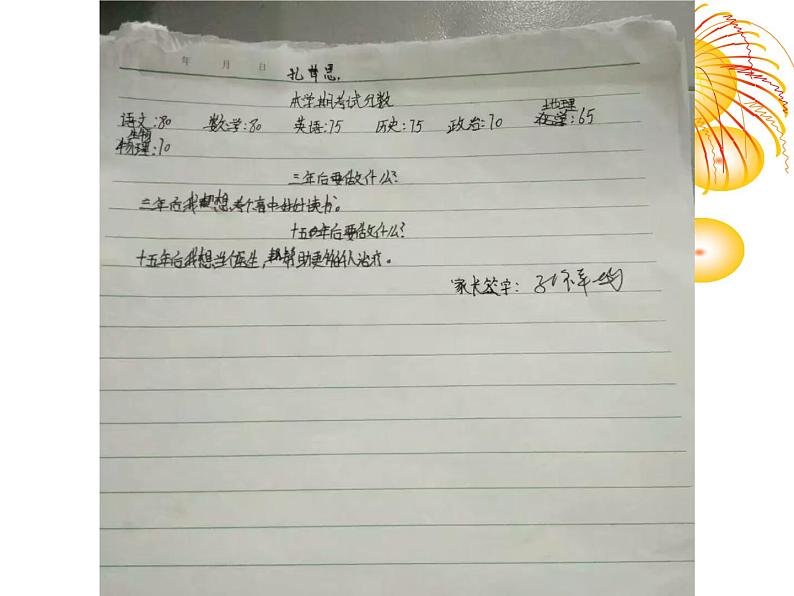 年 月 日
孔 思.
本学期考试分数
语文:80 数学:80 英语:75 历史:75 政治:70 地理:65
生物
物理:70
三年后要做什么?
三年后我想考个高中好好读书。
十五年后要做什么?
十五年后我想当医生,帮助更多的人治疗。
家长签字: